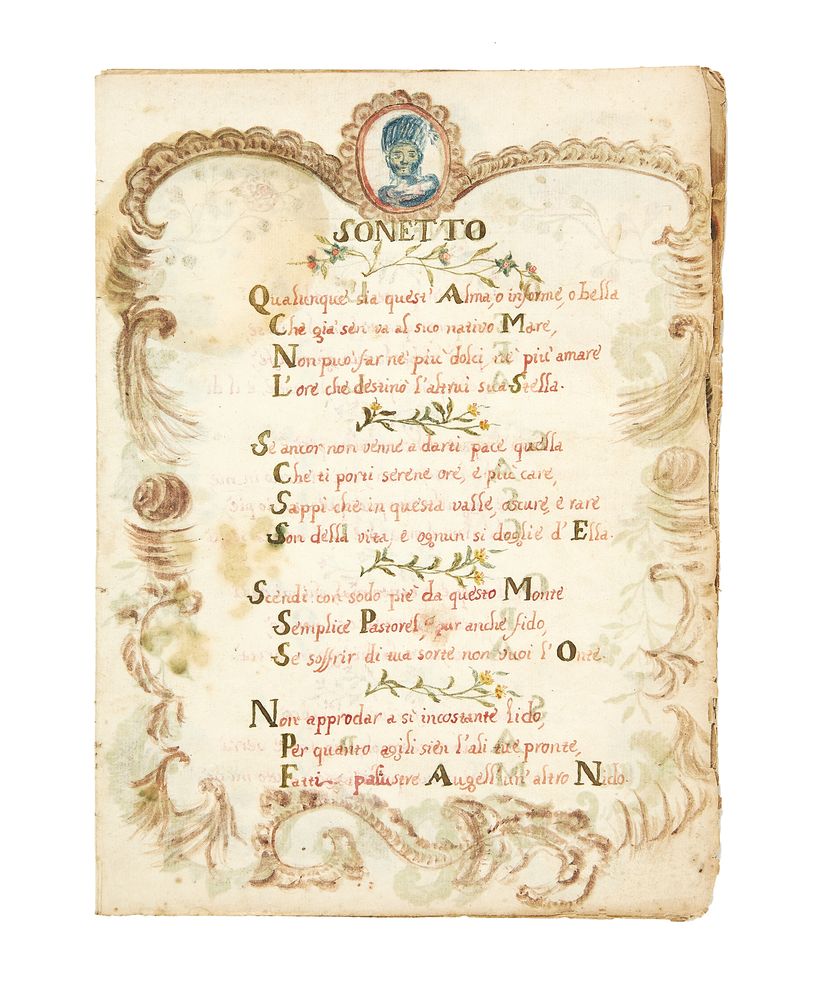 SONETTO
Qualunque sia quest' Alma, o informe, o bella
Che già sen va al suo nativo Mare,
Non può far ne più dolci, ne più amare
L'ore che destinò l'altrui sua Stella.
Se ancor non venne a darti pace quella
Che ti porti serene ore, e più care,
Sappi che in questa valle oscure, e rare
Son della vita, e ognun si doglie d' Ella.
Scendi con sodo piè da questo Monte
Semplice Pastorel, pur anche fido,
Se soffrir di tua sorte non vuoi l' Onte.
Non approdar a sì incostante lido,
Per quanto agili sien l'ali tue pronte,
Fatti palustre Augell un' altro Nido.